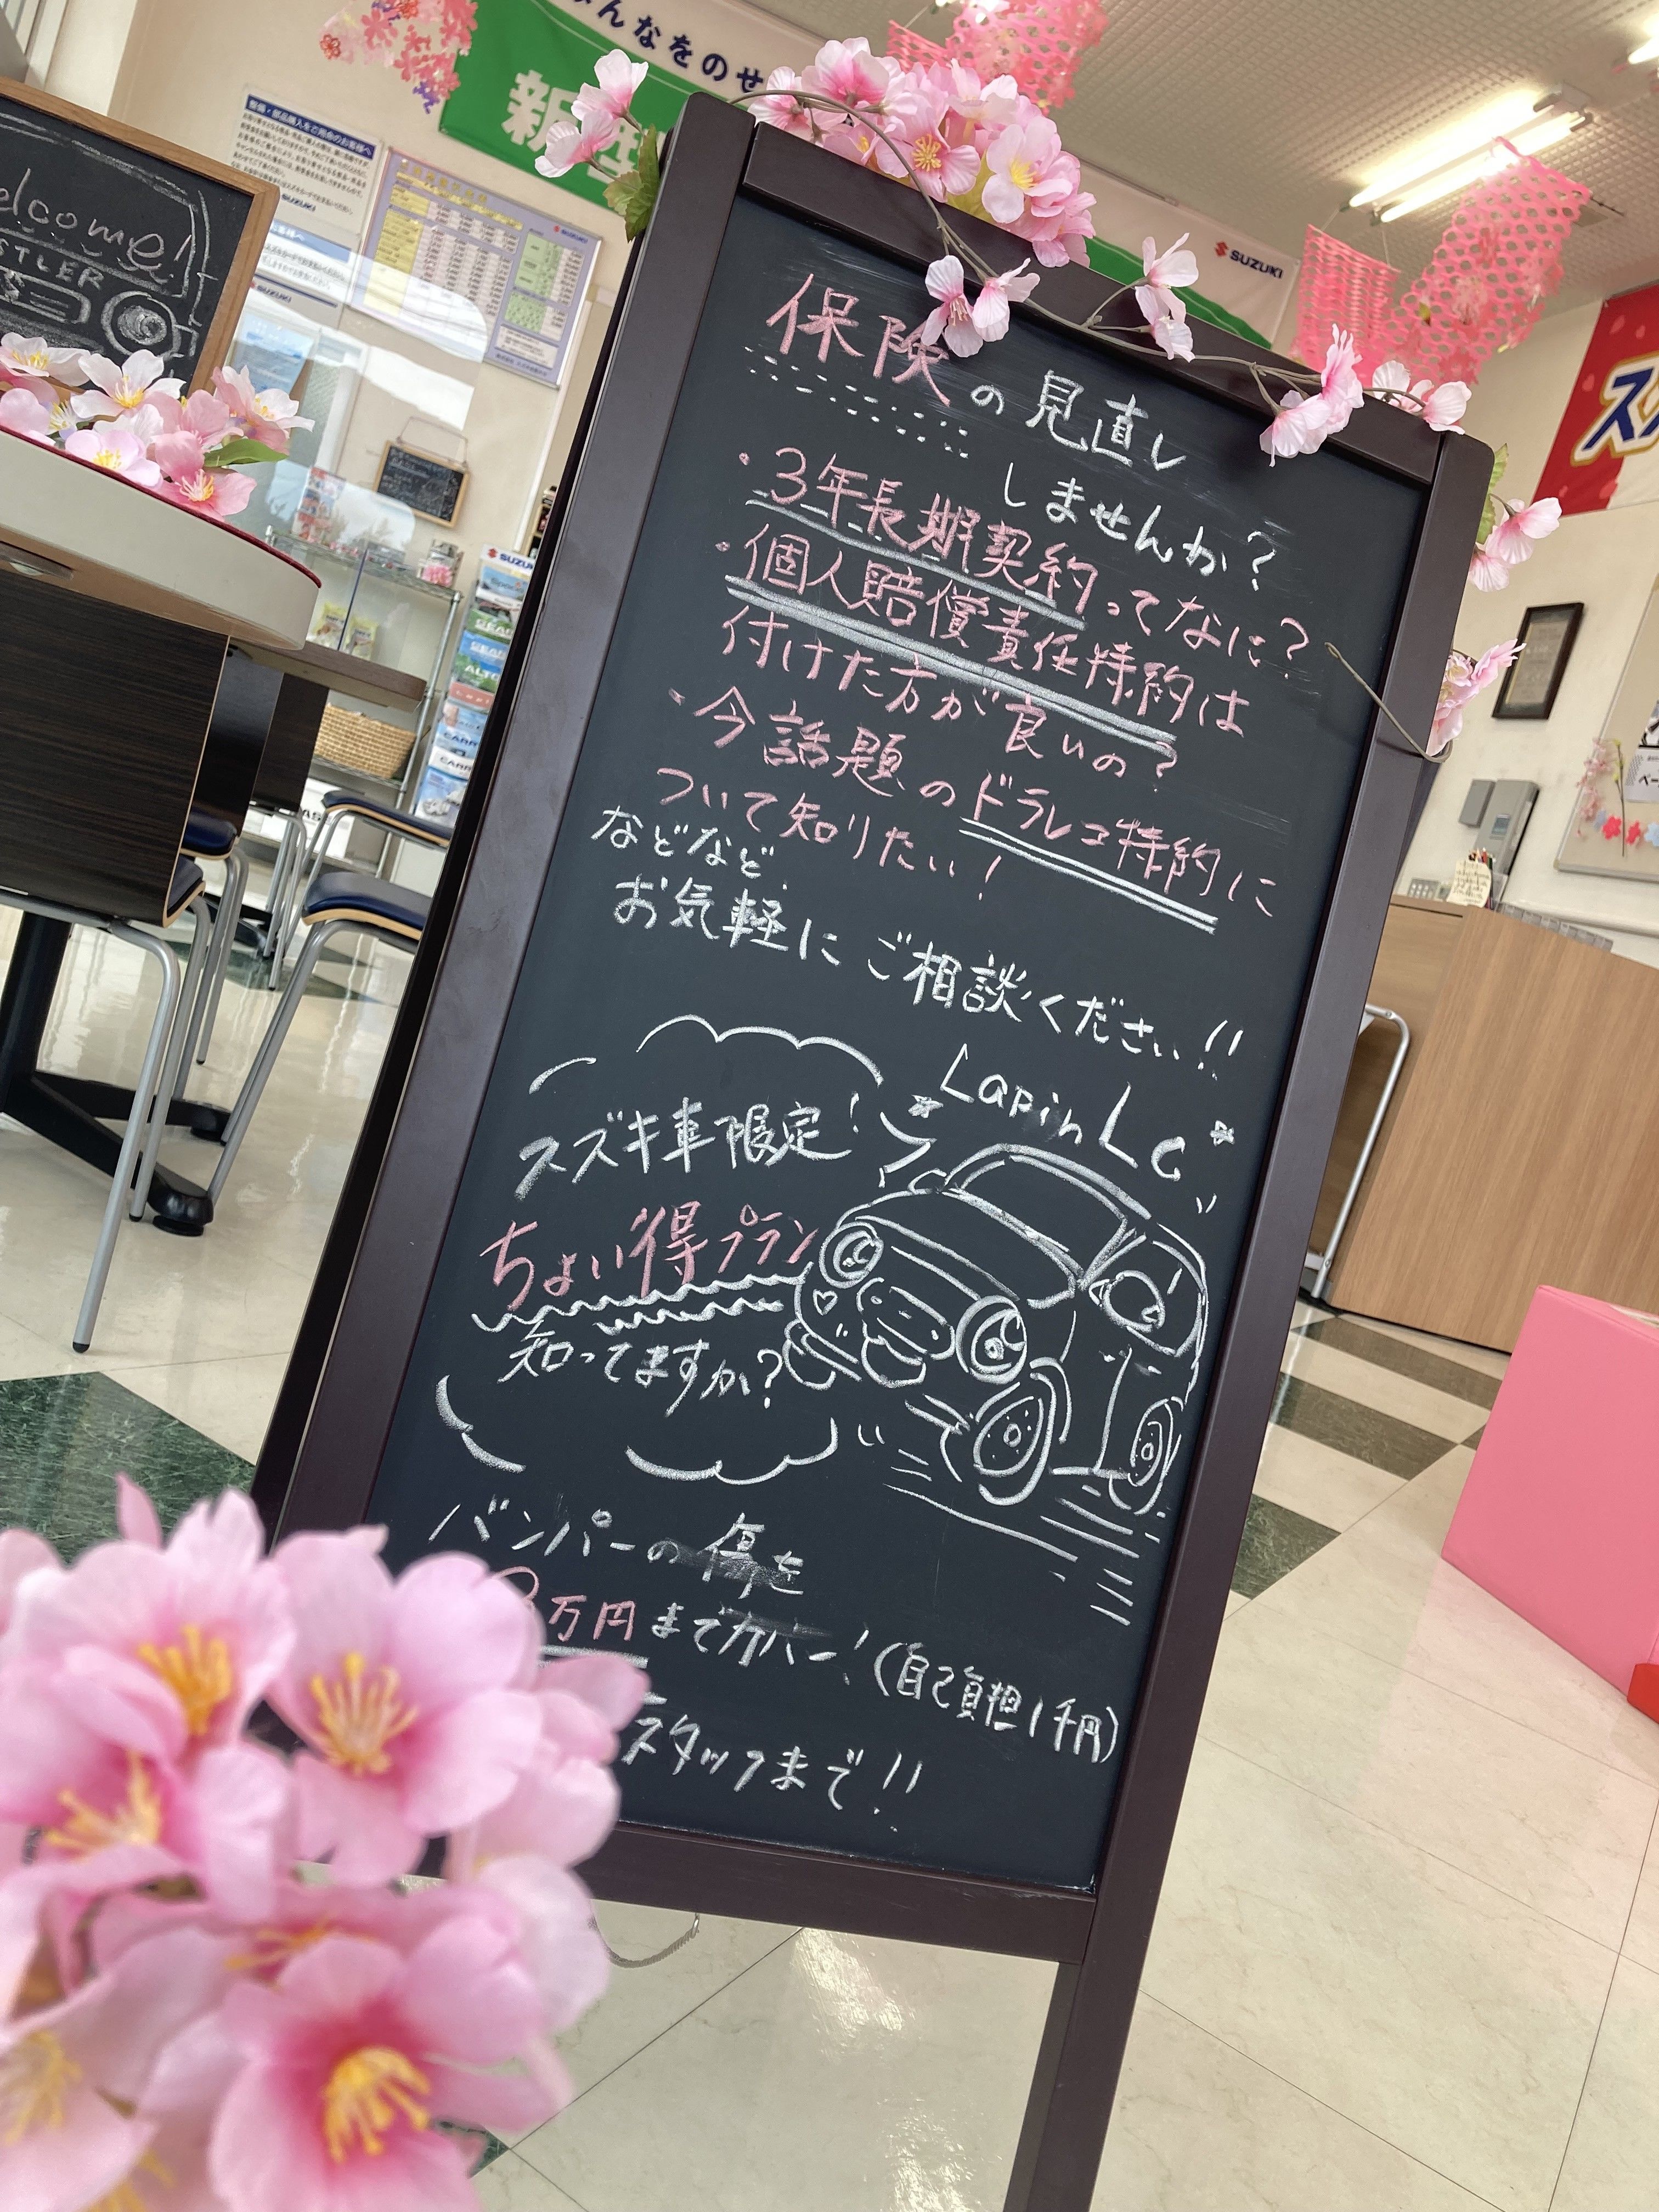 みんなをのせ
新型
SUZUKI
整備・部品購入をご用命のお客様へ
SUZUKI
SUZUKI
elcome!
STLER
SUZUKI
SUZUKI
保険の見直し
しませんか?
・3年長期契約ってなに?
・個人賠償責任特約は
付けた方が良いの?
・今話題のドラレコ特約に
ついて知りたい!
などなど
お気軽にご相談ください!!
Lapin LC
スズキ車限定!
ちょい得プラン
知ってますか?
バンパーの傷を
万円までカバー!(自己負担1千円)
スタッフまで!!